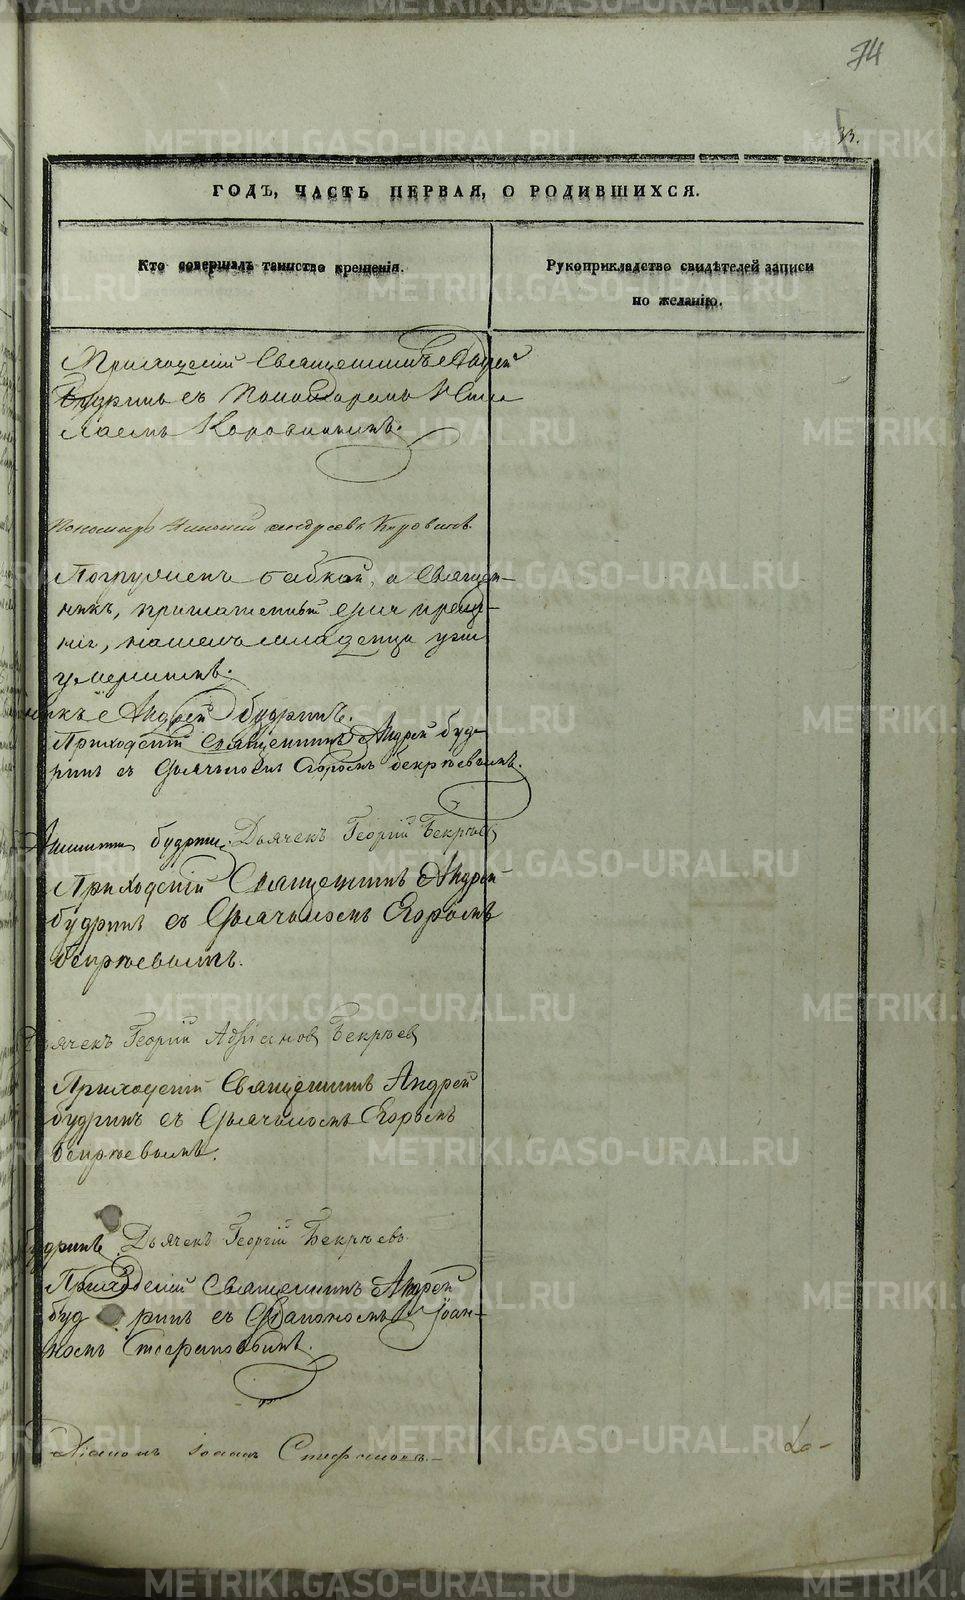 74
33.
ГОДЪ, ЧАСТЬ ПЕРВАЯ, О РОДИВШИХСЯ.
Кто совершалъ таинство крещенія.
Рукоприкладство свидѣтелей записи
по желанію.
Приходскій Священникъ Андрей
Будринъ съ Пономаремъ
Коровинымъ.
Пономарь Андреевъ Коровинъ.
Погруженъ бабкой, а Священ-
никъ, приглашенный для креще-
нія, нашелъ младенца уже
умершимъ.
Андрей Будринъ.
Приходскій Священникъ Андрей Буд-
ринъ съ Дьячькомъ Егоромъ Бекрѣевымъ.
Будринъ. Дьячекъ Георгій Бекрѣевъ
Приходскій Священникъ Андрей
Будринъ съ Дьячькомъ Егоромъ
Бекрѣевымъ.
Дьячекъ Георгій Адріановъ Бекрѣевъ
Приходскій Священникъ Андрей
Будринъ съ Дьячькомъ Егоромъ
Бекрѣевымъ.
Будринъ. Дьячекъ Георгій Бекрѣевъ
Приходскій Священникъ Андрей
Будринъ съ Діакономъ Іоан-
номъ Стефановымъ.
Діаконъ Іоаннъ Стефановъ.
METRIKI.GASO-URAL.RU